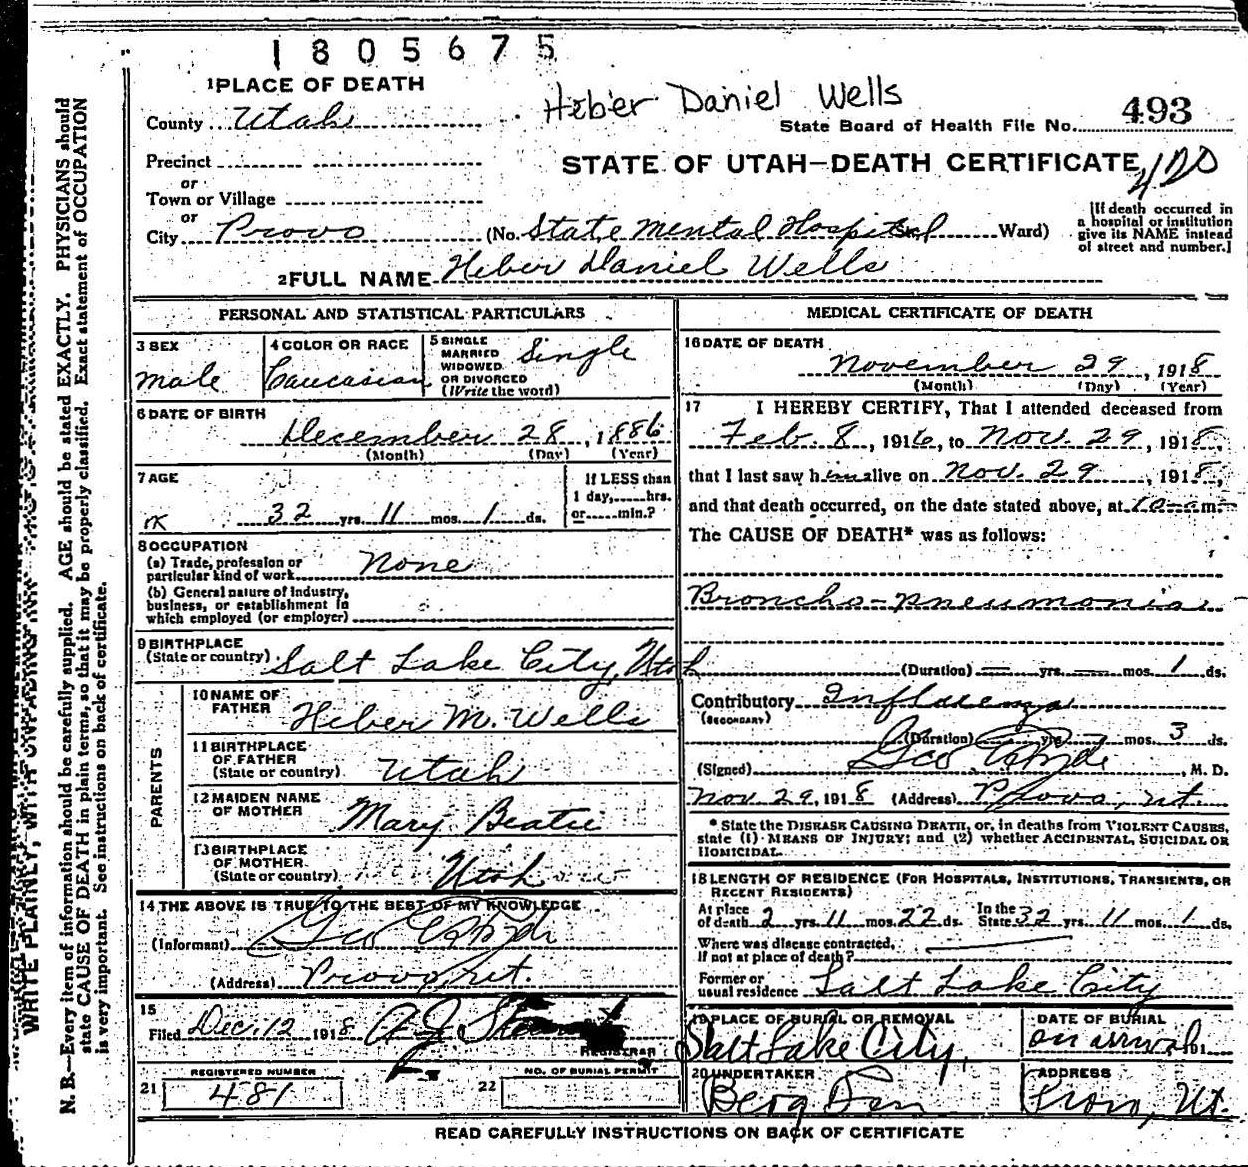 1805675
1 PLACE OF DEATH
Heber Daniel Wells
County Utah
State Board of Health File No. 493
Precinct
STATE OF UTAH—DEATH CERTIFICATE 120
or
Town or Village
or
City Provo (No. State Mental Hospital Ward)
[If death occurred in
a hospital or institution
give its NAME instead
of street and number.]
2 FULL NAME Heber Daniel Wells
PERSONAL AND STATISTICAL PARTICULARS
3 SEX
male
4 COLOR OR RACE
Caucasian
5 SINGLE
MARRIED
WIDOWED
OR DIVORCED
(Write the word)
Single
6 DATE OF BIRTH
December 28, 1886
(Month) (Day) (Year)
7 AGE
32 yrs. 11 mos. 1 ds.
If LESS than
1 day, hrs.
or min.?
8 OCCUPATION
(a) Trade, profession or
particular kind of work None
(b) General nature of Industry,
business, or establishment in
which employed (or employer)
9 BIRTHPLACE
(State or country) Salt Lake City, Utah
PARENTS
10 NAME OF
FATHER Heber M. Wells
11 BIRTHPLACE
OF FATHER
(State or country) Utah
12 MAIDEN NAME
OF MOTHER Mary Beatie
13 BIRTHPLACE
OF MOTHER
(State or country) Utah
14 THE ABOVE IS TRUE TO THE BEST OF MY KNOWLEDGE
(Informant) Geo
(Address) Provo, Ut.
15
Filed Dec. 12 1918 A J
REGISTRAR
REGISTERED NUMBER
21 481
NO. OF BURIAL PERMIT
22
MEDICAL CERTIFICATE OF DEATH
16 DATE OF DEATH
November 29, 1918
(Month) (Day) (Year)
17 I HEREBY CERTIFY, That I attended deceased from
Feb. 8, 1916, to Nov. 29, 1918,
that I last saw him alive on Nov. 29, 1918,
and that death occurred, on the date stated above, at m.
The CAUSE OF DEATH* was as follows:
Broncho-pneumonia
(Duration) yrs. mos. 1 ds.
Contributory Influenza
(SECONDARY)
(Duration) yrs. mos. 3 ds.
(Signed) Geo , M. D.
Nov 29, 1918 (Address) Provo, Ut.
* State the DISEASE CAUSING DEATH, or, in deaths from VIOLENT CAUSES,
state (1) MEANS OF INJURY; and (2) whether ACCIDENTAL, SUICIDAL OR
HOMICIDAL.
18 LENGTH OF RESIDENCE (FOR HOSPITALS, INSTITUTIONS, TRANSIENTS, OR
RECENT RESIDENTS)
At place
of death 2 yrs. 11 mos. 22 ds. In the
State 32 yrs. 11 mos. 1 ds.
Where was disease contracted,
If not at place of death?
Former or
usual residence Salt Lake City
19 PLACE OF BURIAL OR REMOVAL
Salt Lake City,
DATE OF BURIAL
on arrival 191
20 UNDERTAKER
Berg
ADDRESS
Provo, Ut.
READ CAREFULLY INSTRUCTIONS ON BACK OF CERTIFICATE
WRITE PLAINLY, WITH UNFADING
N. B.—Every item of information should be carefully supplied. AGE should be stated EXACTLY. PHYSICIANS should
state CAUSE OF DEATH in plain terms, so that it may be properly classified. Exact statement of OCCUPATION
is very important. See instructions on back of certificate.